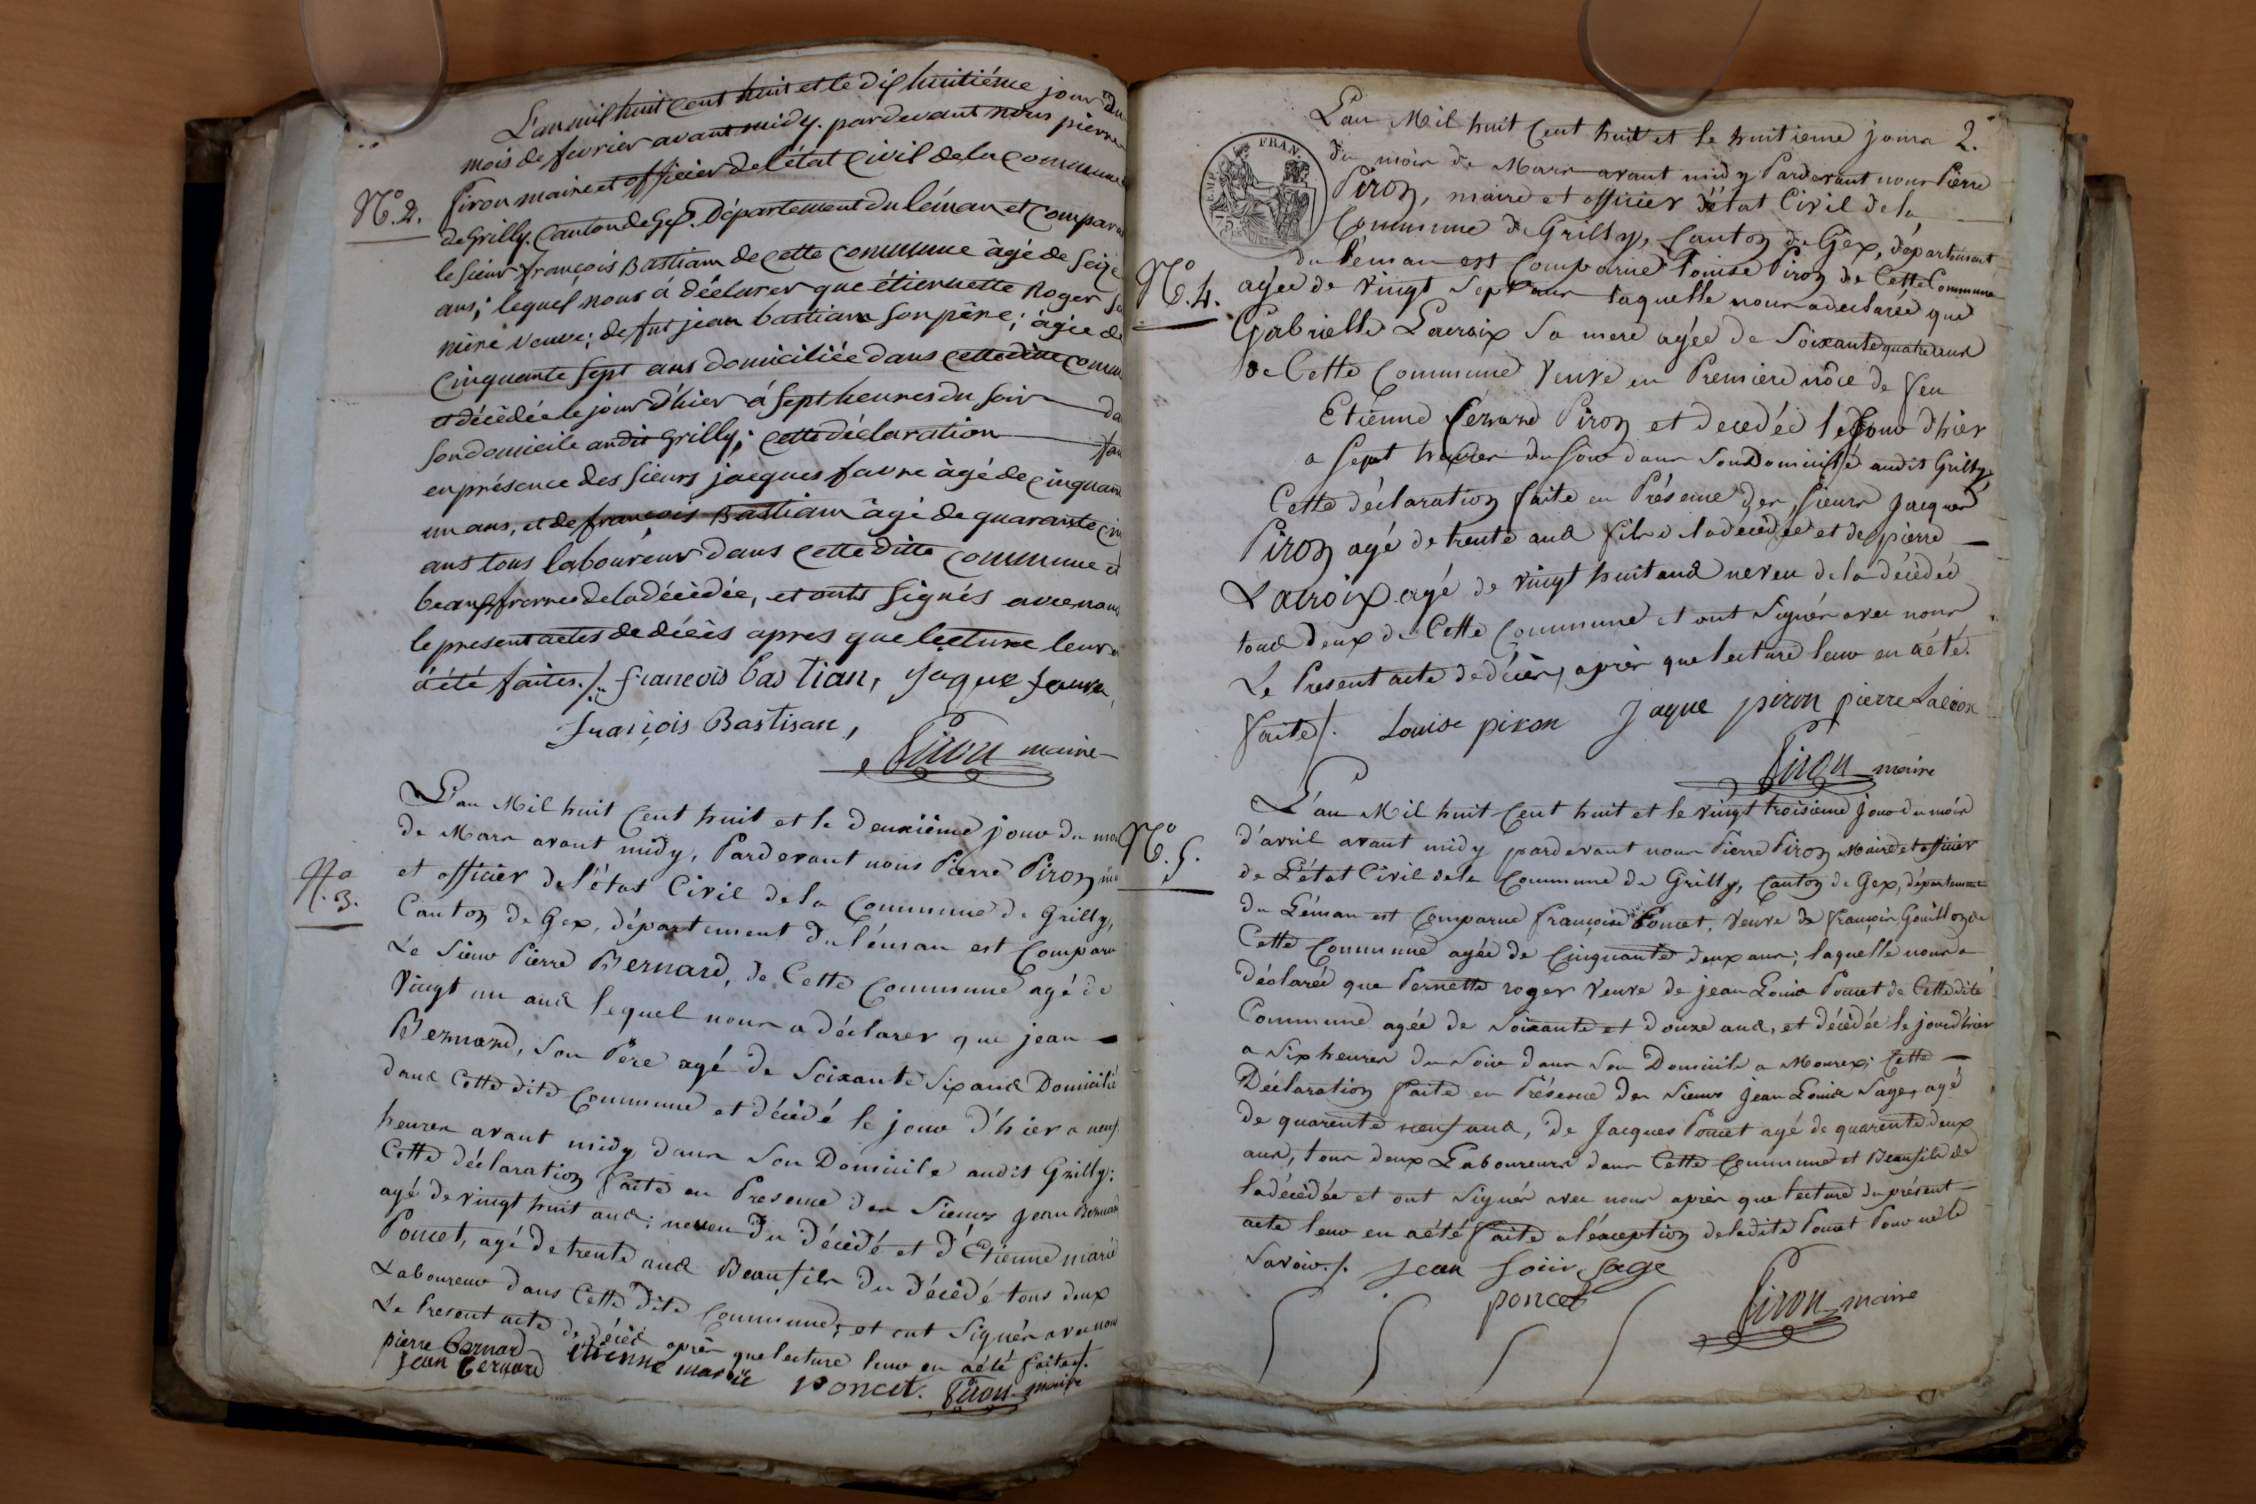 L'an mil huit Cent huit et le dix huitiéme jour du
mois de fevrier avant midy. pardevant nous pierre
N.o 2.
Piron maire et officier de l'état Civil de la commune
de Grilly. Canton de Gex. Département du léman et Comparu
le sieur françois Bastiam de cette commune âgé de seize
ans; lequel nous à déclarer que étiennette Roger sa
mère veuve; de fut jean bastiam son père; âgée de
Cinquante sept ans domiciliée dans cette ditte comm
et décèdée le jour d'hier á sept heures du soir — da
son domicile au dit Grilly; cette déclaration — fai
en présence des sieurs jacques favre âgé de cinquan
un ans, et de françois Bastiam âgé de quarante cin
ans tous laboureur dans cette ditte commune et
beaux freres de la décèdée, et onts signés avec nous
le present actes de décès apres que lecture leur
à été faites ./. francois bastian, jaque favre,
françois Bastian,
Piron maire
L'an Mil huit Cent huit et le deuxième jour du moi
de Mars avant midy, Pardevant nous Pierre Piron
N.o 3.
et officier de l'état Civil de la Commune de Grilly,
Canton de Gex, département du léman est Comparu
Le Sieur Pierre Bernard, de Cette Commune agé de
Vingt un ans lequel nous a déclarer que jean —
Bernard, son Père agé de soixante six ans Domicilié
dans Cette dite Commune et décèdé le jour d'hier a neuf
heures avant midy dans son Domicile audit Grilly:
Cette déclaration faite en Presence des Sieurs jean Bernard
agé de vingt huit ans; neveu du décèdé et d'Etienne marie
Poncet, agé de trente ans Beaufils du décèdé tous deux
Laboureur dans Cette dite Commune; et ont signés avec nous
Le Present acte de décès après que lecture leur en a été faite ./.
pierre bernard
jean bernard etienne marie poncet. Piron maire
L'an Mil huit Cent huit et le huitieme jour 2.
du mois de Mars avant midy Pardevant nous Pierre
EMP. FRAN.
Piron, maire et officier d'état Civil de la
Commune de Grilly, Canton de Gex, département
du léman est Comparue Louise Piron de Cette Commune
N.o 4.
agée de vingt sept ans laquelle nous a declarée que
Gabrielle Lacroix sa mere agée de Soixante quatre ans
de Cette Commune Veuve en Premiere nôce de feu
Etienne Piron et decedée le jour d'hier
a Sept heures du soir dans son Domicile audit Grilly,
Cette déclaration faite en Présence des, sieurs Jacques
Piron agé de trente ans fils de la decèdée et de pierre —
Lacroix agé de vingt huit ans neveu de la décèdée
tous deux de Cette Commune et ont Signés avec nous
Le Present acte de décès, après que lecture leur en a été.
faite ./. Louise piron Jaque piron pierre Lacroix
Piron maire
L'an Mil huit Cent huit et le vingt troisieme jour du mois
d'avril avant midy pardevant nous Pierre Piron Maire et officier
N.o 5.
de L'état Civil de la Commune de Grilly, Canton de Gex, département
du Léman est Comparue françoise Poncet, Veuve de françois Gouillon de
Cette Commune agée de Cinquante deux ans; laquelle nous a
déclarée que Pernette roger Veuve de jean Louis Poncet de Cette dite
Commune agée de Soixante et douze ans, et décèdée le jour d'hier
a six heures du soir dans son Domicile a Mourex; Cette —
Déclaration faite en Présence des Sieurs jean Louis Sage, agé
de quarente neuf ans, de Jacques Poncet agé de quarente deux
ans, tous deux Laboureurs dans Cette Commune et Beaufils de
la décèdée et ont signés avec nous après que lecture du présent —
acte leur en a été faite a l'éxception de ladite Poncet Pour ne le
Savoir ./. jean loüis sage
poncet
Piron maire